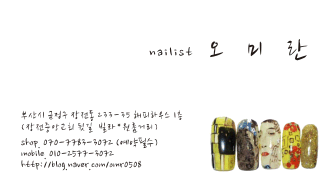 nailist 오 미 란
부산시 금정구 장전동 233-35 해피하우스 1층
(장전중앙교회 뒷길 빌라*원룸거리)
shop. 070-7783-3072 (예약필수)
mobile. 010-2577-3072
http://blog.naver.com/omr0508